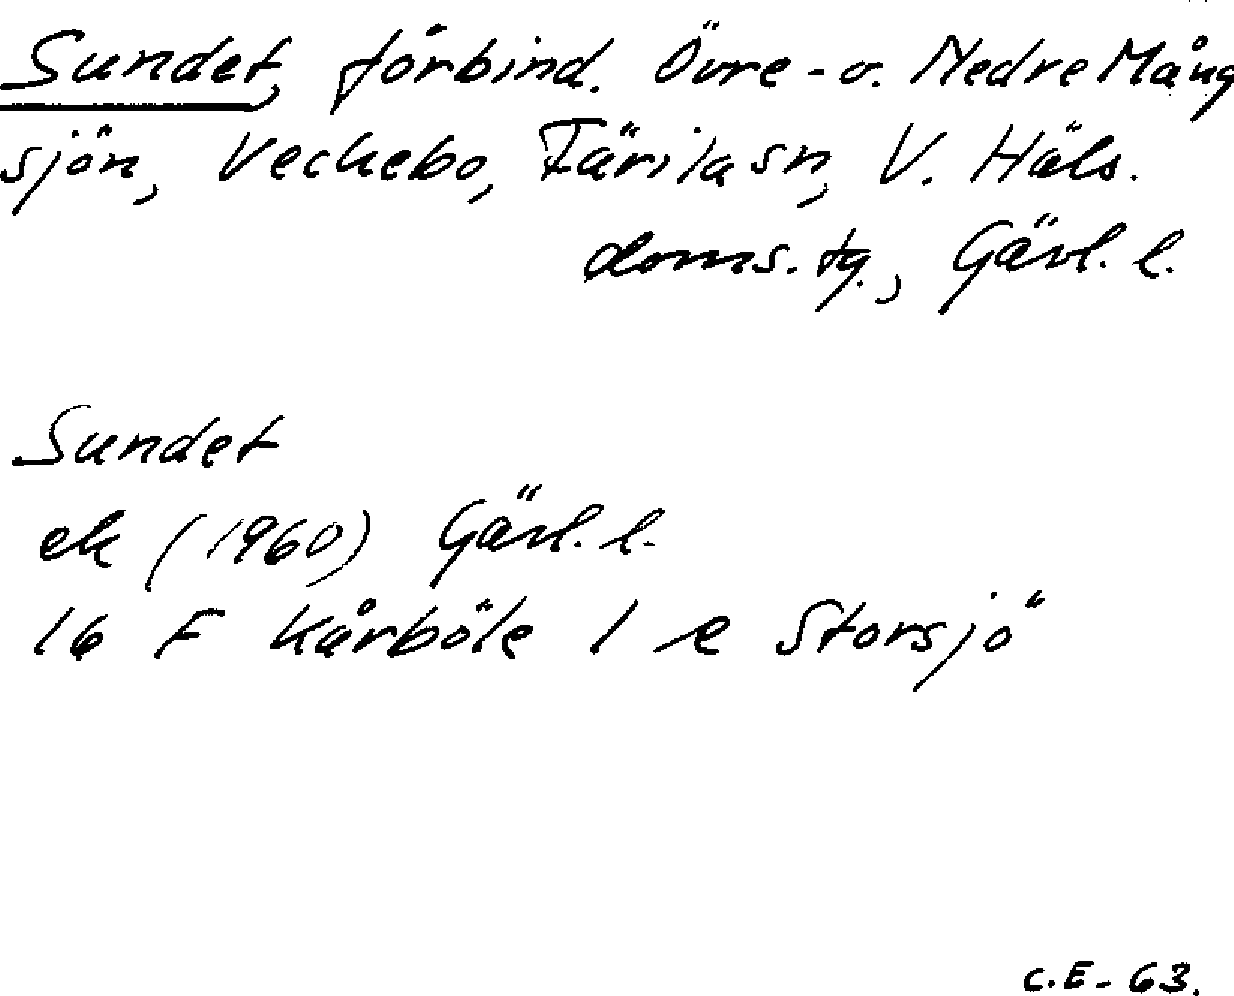 Sundet, förbind. Övre- o. Nedre Mång
sjön, Veckebo, Färila sn, V. Häls.
doms. tg., Gävl. l.
Sundet
ek (1960) Gävl. l.
16 F Kårböle 1 e Storsjö
C.E - 63.